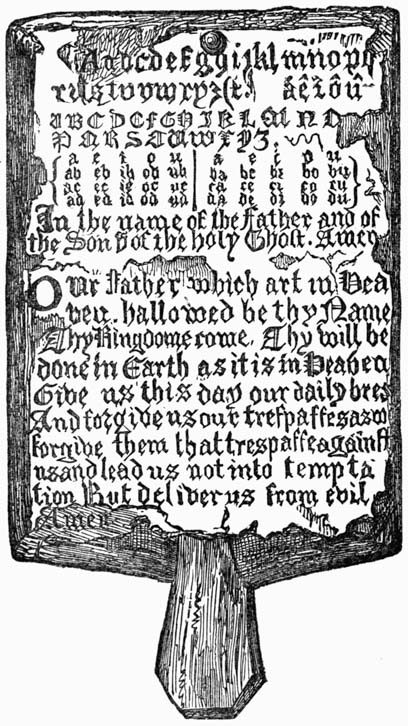 Aabcdefghijklmnopq
rſstuvwxyz&c: âêîôû
ABCDEFGHIKLMNO
PQRSTUWXYZ.
a e i o u a e i o u
ab eb ib ob ub ba be bi bo bu
ac ec ic oc uc ca ce ci co cu
ad ed id od ud da de di do du
In the name of the Father and of
the Son & of the holy Ghost. Amen
Our Father which art in Hea
ven, hallowed be thy Name
Thy Kingdome come, Thy will be
done in Earth as it is in Heaven
Give us this day our daily brea
And forgive us our treſpaſſes as w
forgive them that treſpaſſe againſt
us and lead us not into tempta
tion But deliver us from evil
Amen